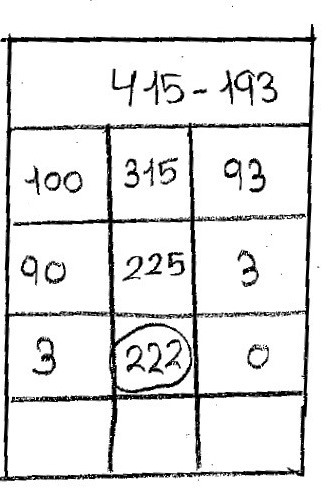 415-193
100 315 93
90 225 3
3 222 0